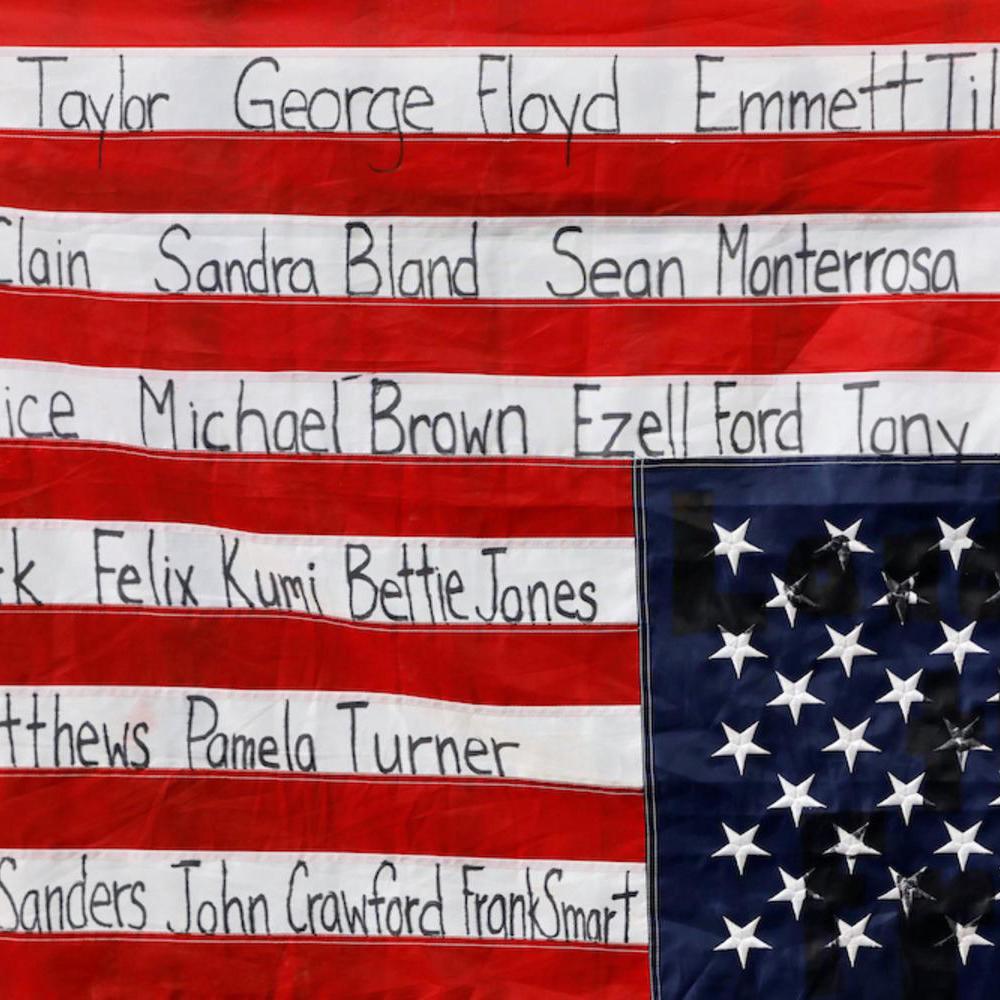 Taylor George Floyd Emmett Til
Clain Sandra Bland Sean Monterrosa
ice Michael Brown Ezell Ford Tony
k Felix Kumi Bettie Jones
tthews Pamela Turner
Sanders John Crawford Frank Smart